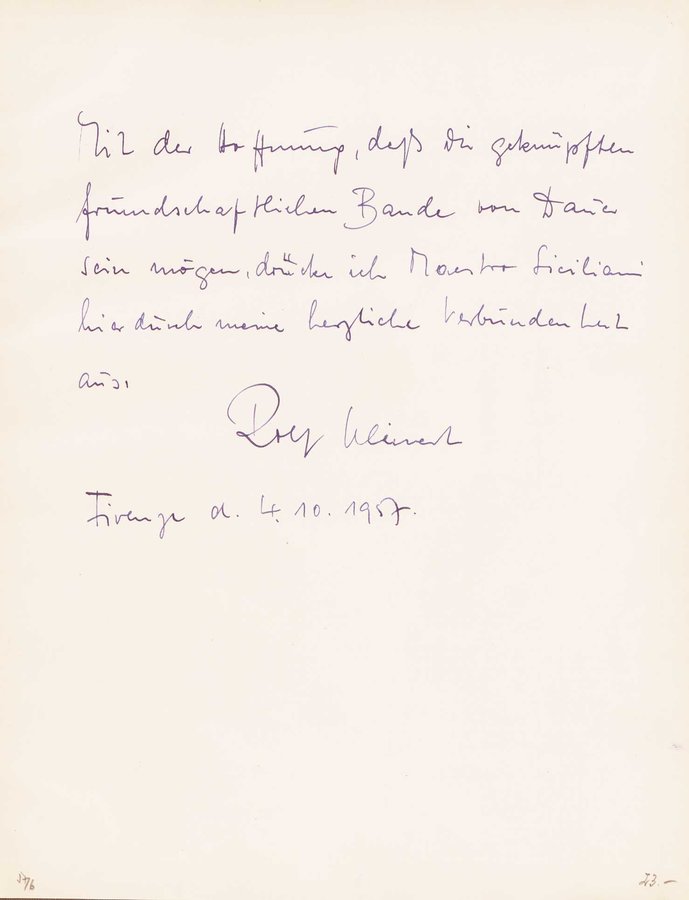 Mit der Hoffnung, daß die geknüpften
freundschaftlichen Bande von Dauer
sein mögen, drücke ich Maestro Siciliani
hierdurch meine herzliche Verbundenheit
aus.
Rolf Kleinert
Firenze d. 4.10.1957.
23.-